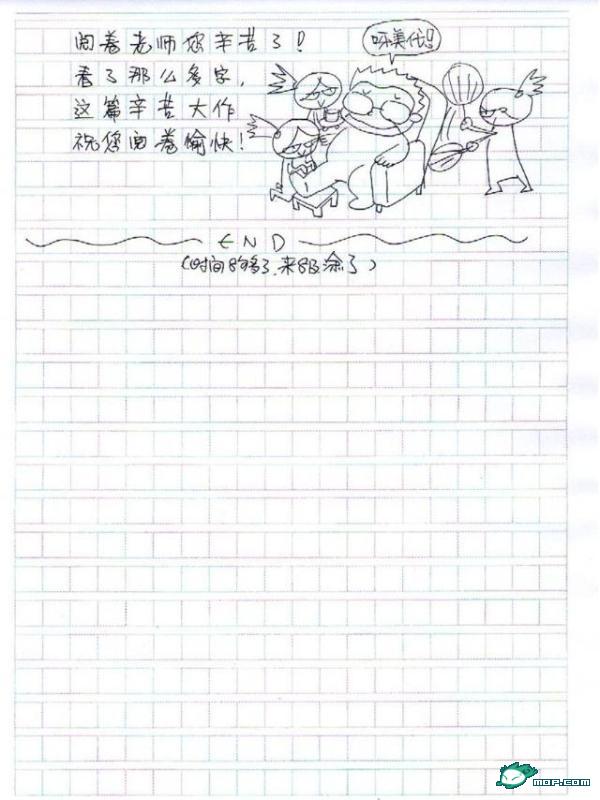 阅卷老师您辛苦了!
看了那么多字,
这篇辛苦大作
祝您阅卷愉快!
呀美代!!
END
(时间够了,来
MOP.COM